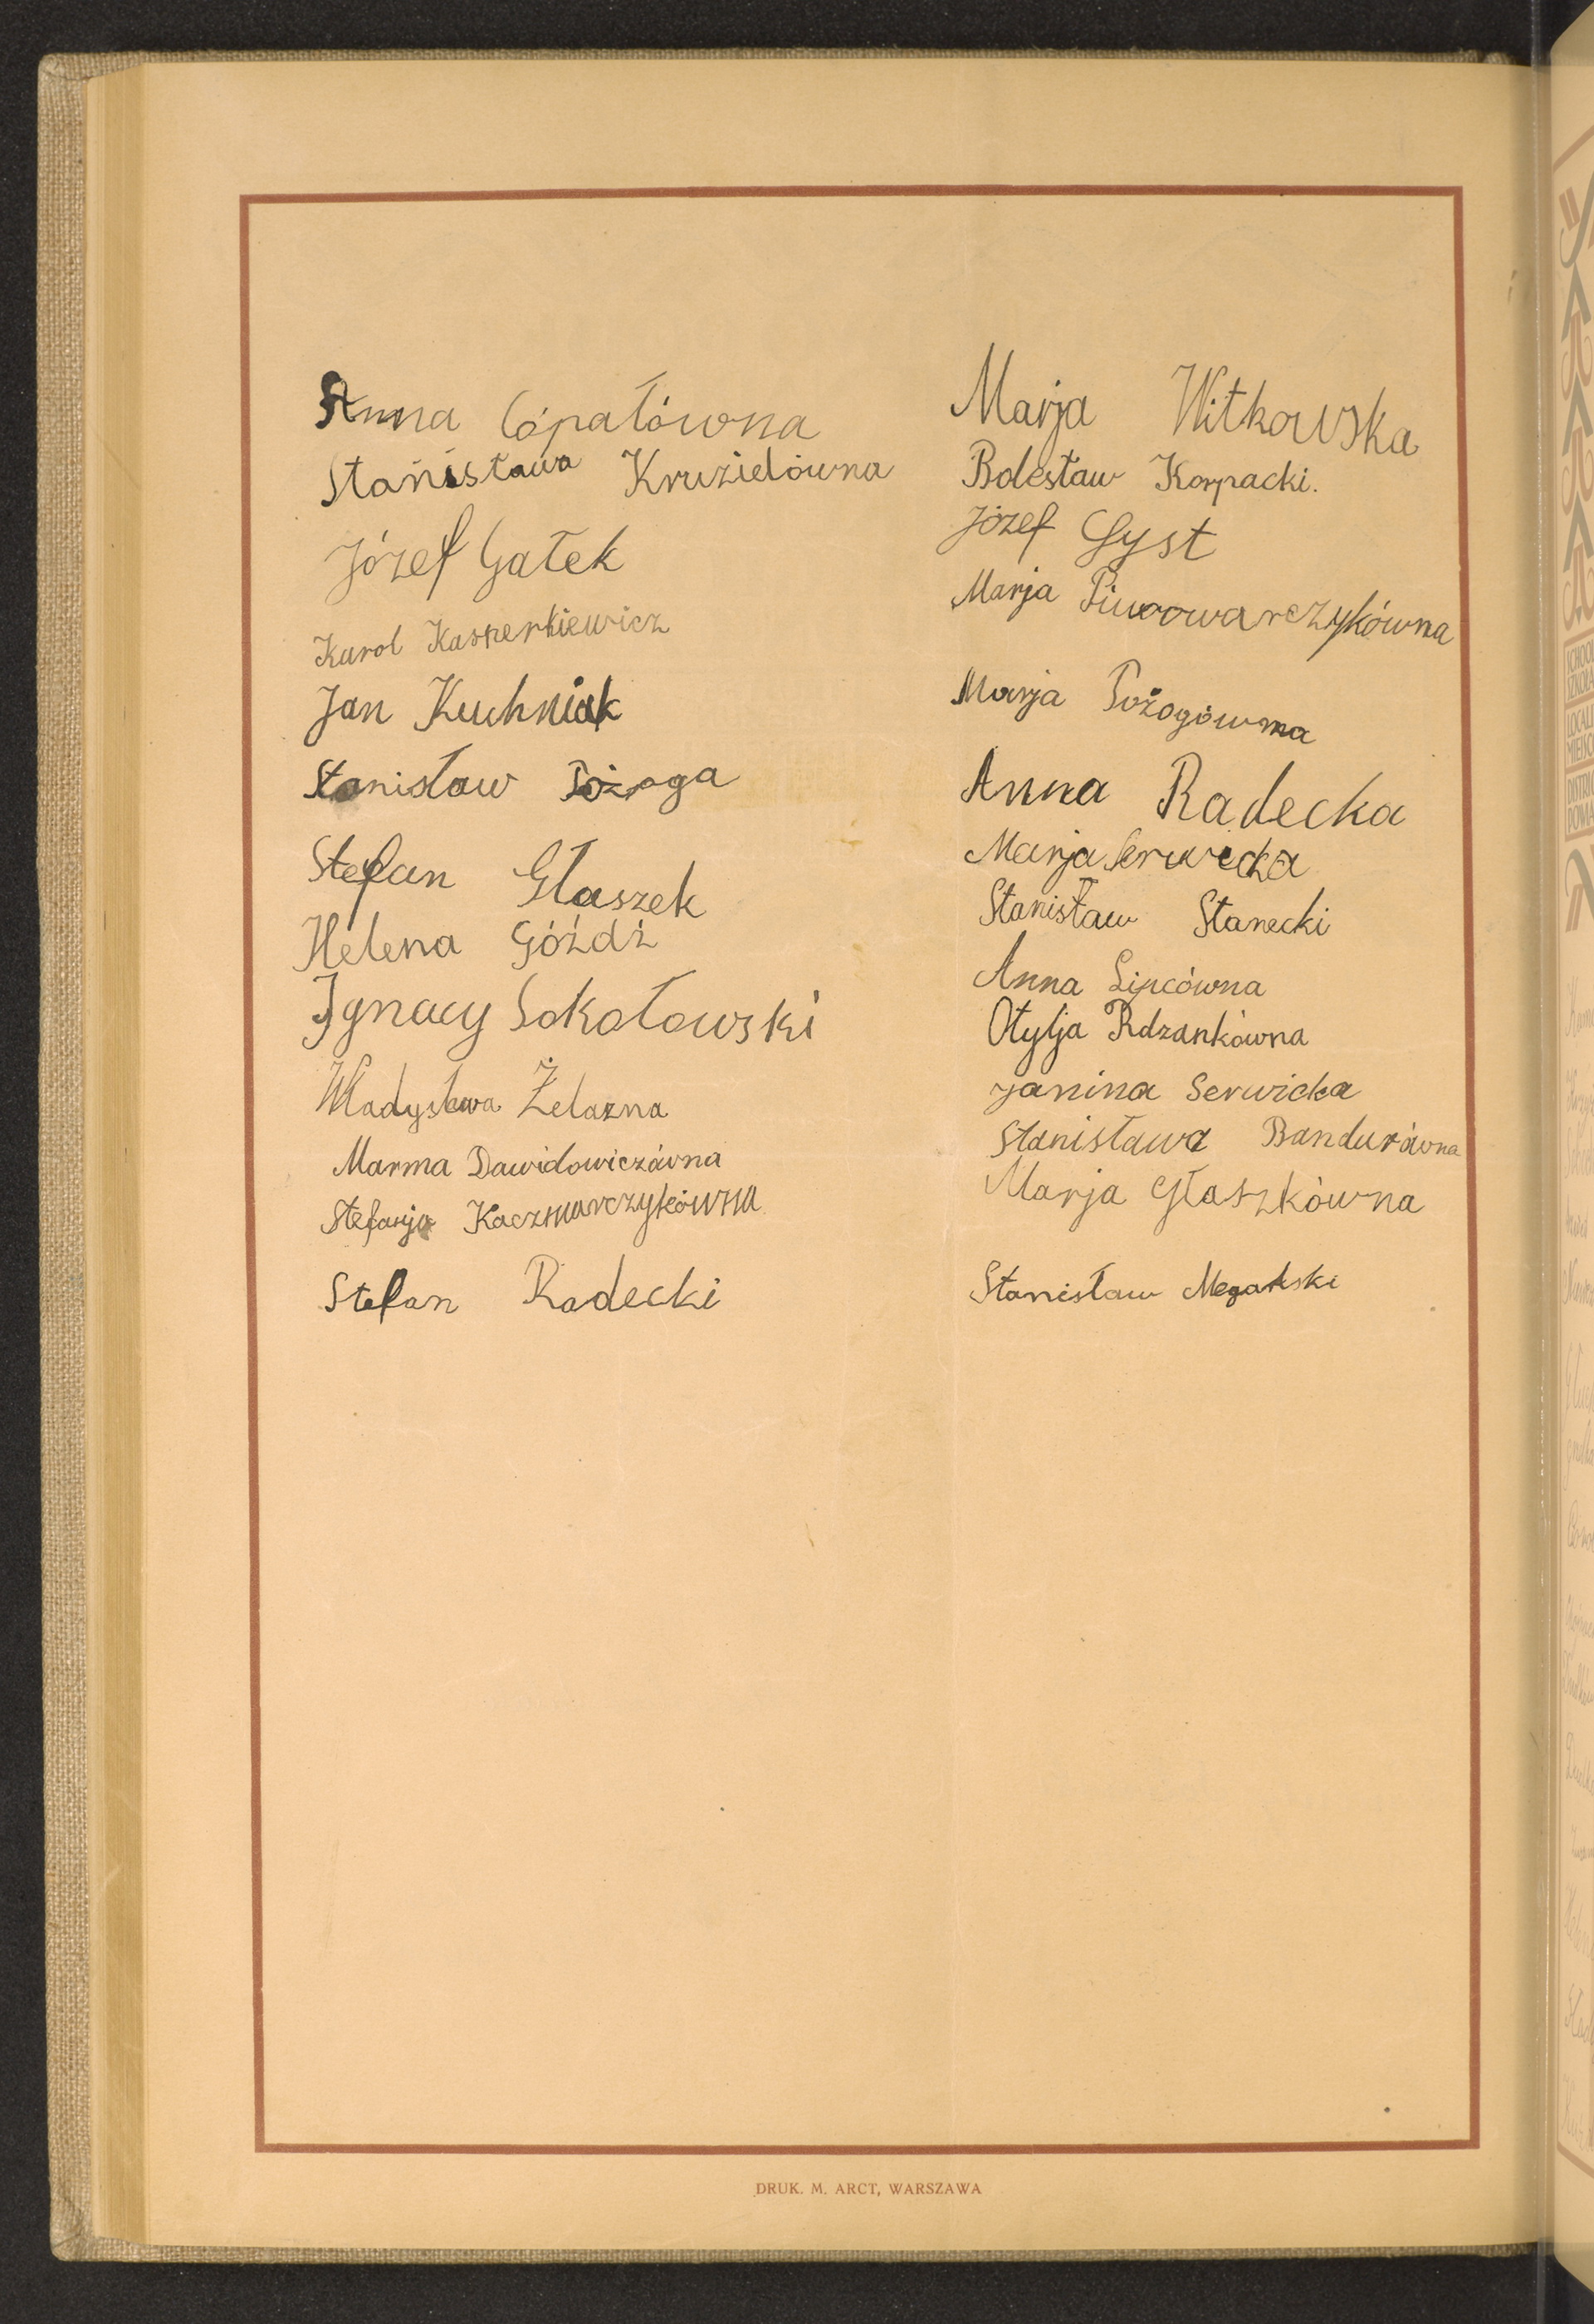 Anna Cópałówna
Stanisława Kruzielówna
Józef Gałek
Karol Kasperkiewicz
Jan Kuchniak
Stanisław Pożoga
Stefan Głaszek
Helena Góźdź
Ignacy Sokołowski
Władysława Żelazna
Marma Dawidowiczówna
Stefanja Kaczmarczykówna
Stefan Radecki
Marja Witkowska
Bolesław Korpacki.
Józef Gyst
Marja Piwowarczykówna
Marja Pożogówna
Anna Radecka
Marja Serwicka
Stanisław Stanecki
Anna Lipcówna
Otylja Rdzankówna
Janina Serwicka
Stanisława Bandurówna
Marja Głaszkówna
Stanisław
DRUK. M. ARCT, WARSZAWA